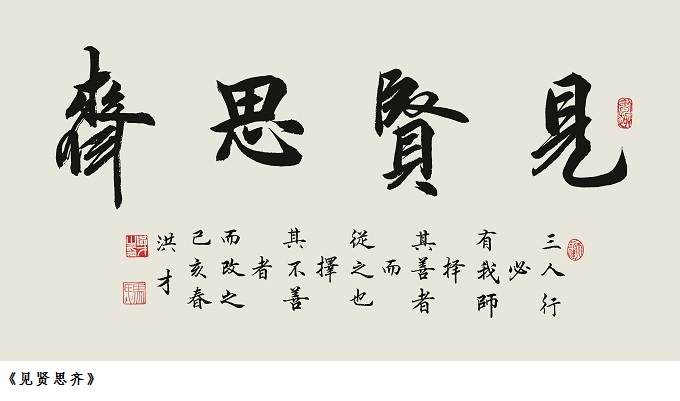 見賢思齊
三人行
必
有我師
择
其善者
而
從之也
擇
其不善
者
而改之
己亥春
洪才
《见贤思齐》